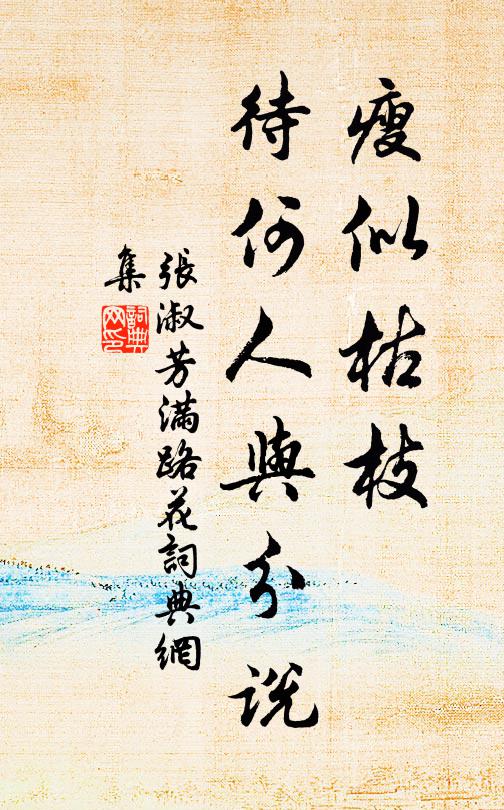 瘦似枯枝
待何人與分說
張淑芳滿路花詞典網
集
詞典網印